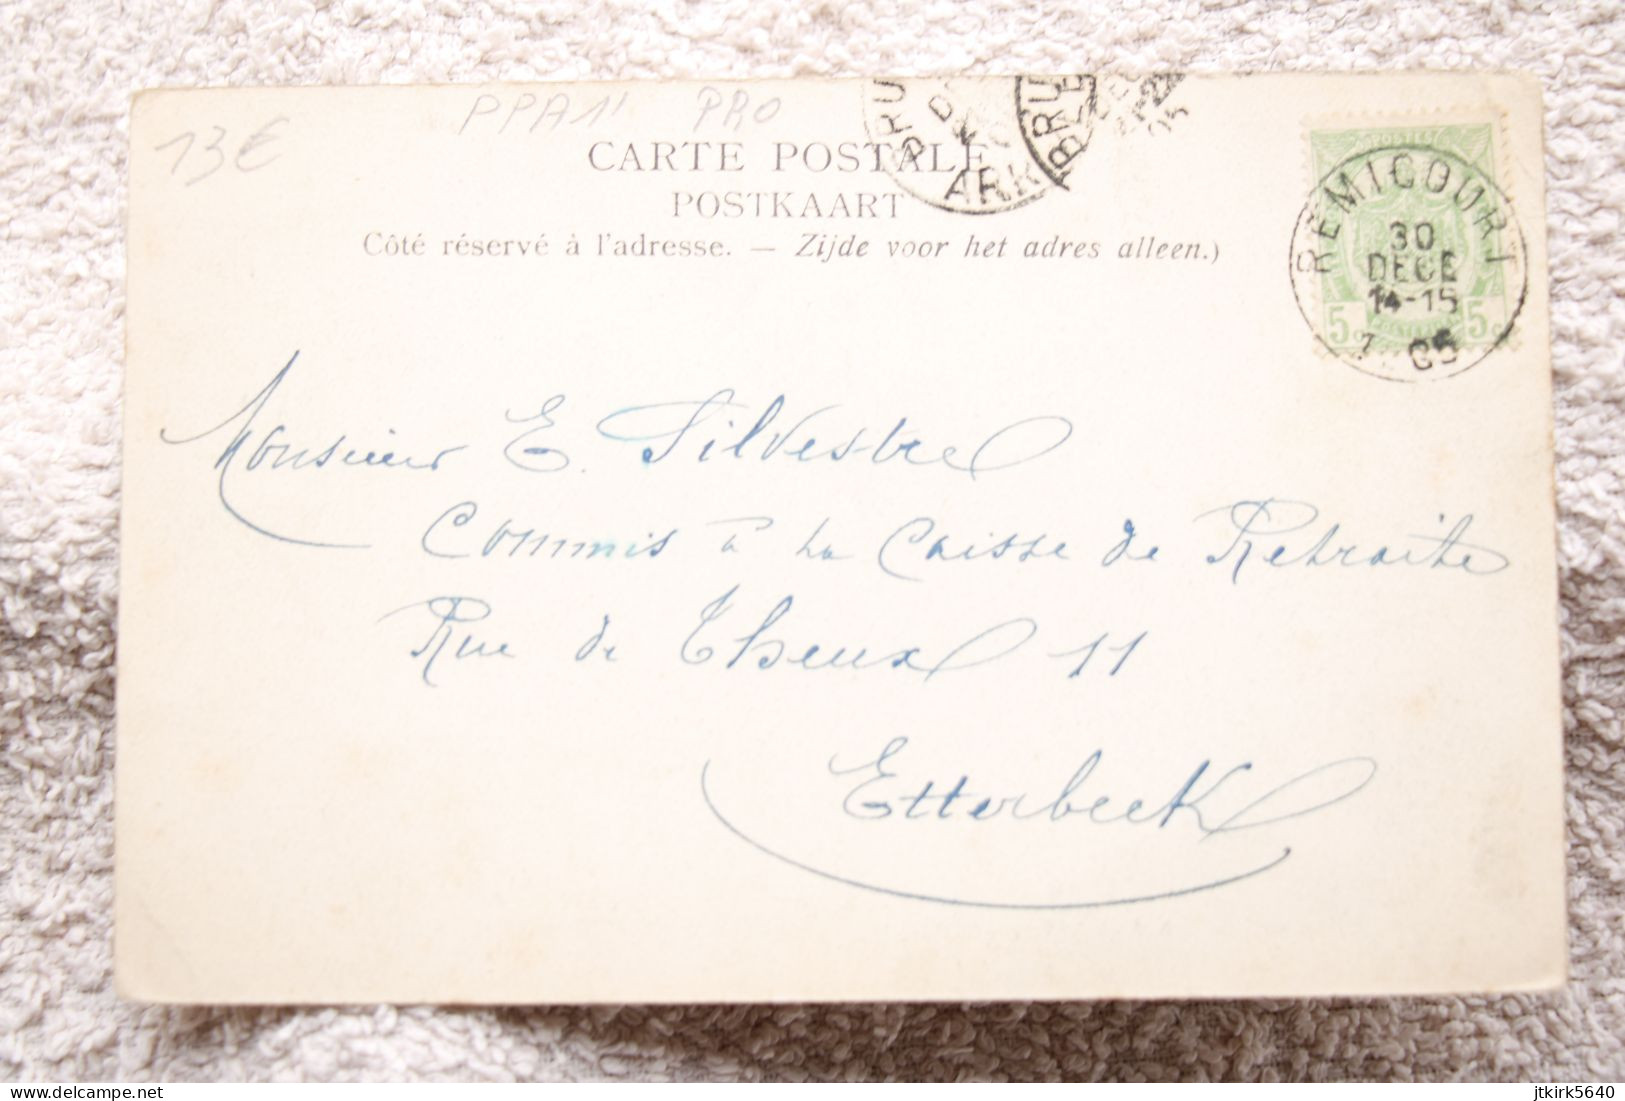 13€
PRO
CARTE POSTALE
POSTKAART
Côté réservé à l'adresse. — Zijde voor het adres alleen.)
POSTES
REMICOURT
30
DECE
14-15
05
5c 5c
Monsieur E. Silvestre
Commis à la Caisse de Retraite
Rue de Theux 11
Etterbeek
delcampe.net
jtkirk5640